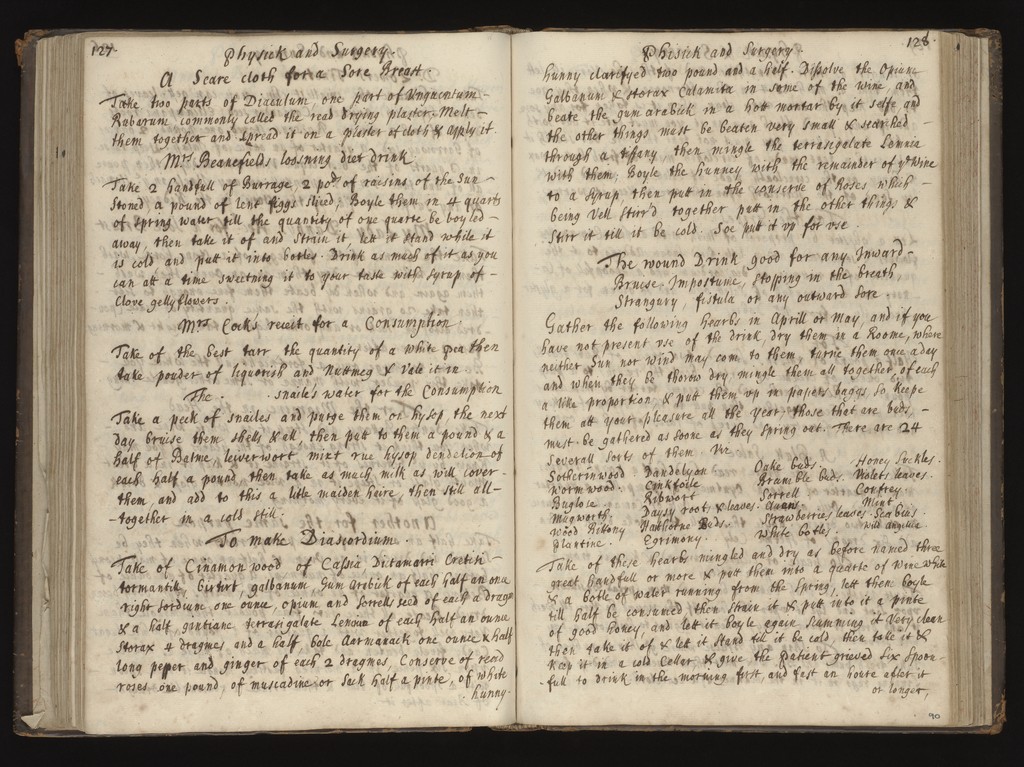 127
Physick and Surgery.
A Seare cloth for a Sore Breast.
Take two parts of Diaculum, one part of Unguentum
Rubarum commonly called the read drying plaster. Melt
them together and Spread it on a plaster of cloth & apply it.
Mrs Beanefields loosning diet drink
Take 2 handfull of Burrage, 2 pod of raisins of the Sun
Stoned a pound of lent figgs sliced, Boyle them in 4 quarts
of Spring water till the quantity of one quarte be boyled
away, then take it of and Strain it lett it stand while it
is cold and putt it into botles. Drink as much of it as you
can att a time sweetning it to your taste with Syrup of
Clove gellyflowers.
Mrs Cock's receit for a Consumption
Take of the best tarr the quantity of a white pea then
take pouder of liquorish and Nuttmeg & Vale it in
The snaile's water for the Consumption
Take a peck of snailes and purge them on hysop, the next
day bruise them shells & all, then putt to them a pound & a
half of Balme, leiverwort mint rue hysop dendelion of
each half a pound, then take as much milk as will cover
them, and add to this a litle maiden haire, then still all
together in a cold still.
To make Diascordium.
Take of Cinamon wood of Cassia Ditamarri Cretiti
tormantile, bistirt, galbanum, Gum arabick of each half an once
right Sordium one ounce, opium and Sorrells seed of each a dragm
& a half, gintiane terrasigalate Lenioe of each half an ounce
Storax 4 dragmes and a half bole Aarmanack one ounce & half
long pepper and ginger of each 2 dragmes, Conserve of read
roses one pound, of muscadine or Sack half a pinte, of white
hunny.
128
Phisick and Surgery.
hunny clarifyed two pound and a half. Dissolve the Opium
Galbanum & Storax Calamita in some of the wine, and
beate the gum arabick in a hott mortar by it selfe and
the other things must be beaten very small & searched
through a tiffany then mingle the terrasigalate Lennia
with them, Boyle the hunney with the remainder of ye Wine
to a Syrup then putt in the conserve of Roses which
being Vell Sturr'd together putt in the other things &
Stirr it till it be cold. Soe putt it up for use.
The wound Drink good for any Inward
Bruese Impostume, Stopping in the breath
Strangury, fistula or any outward Sore.
Gather the following hearbs in Aprill or May, and if you
have not present use of the drink, dry them in a Roome, where
neither Sun nor wind may come to them, turne them once a day
and when they be thorow dry mingle them all together, of each
a like proportion & putt them up in papers baggs, so keepe
them att your pleasure all the year, those that are beds,
must be gathered as soone as they Spring out. There are 24
Severall Sorts of them Viz
Sotherinwood Dandelyon Oake buds Honey Suckles.
Wormwood. Cinkfoile Bramble buds Violets leaves.
Buglose Ribwort Sorrell Comfrey
Mugworth Daysy roots & leaves Auans Mint.
Wood Bittony Hawthorne Buds. Strawberries leaves Scabius
Plantine. Egrimony. White botles wild angelica
Take of these hearbs mingled and dry as before named three
great handfull or more & putt them into a quarte of Wine white
& a botle of water running from the Spring, lett them boyle
till half be consumed then strain it & putt into it a pinte
of good honey, and lett it boyle again Scumming it very clean
then take it of & let it stand till it be cold, then take it &
keep it in a cold Cellar & give the patient grieved Six Spoon-
full to drink in the morning first, and fast an houre after it
or longer,
90